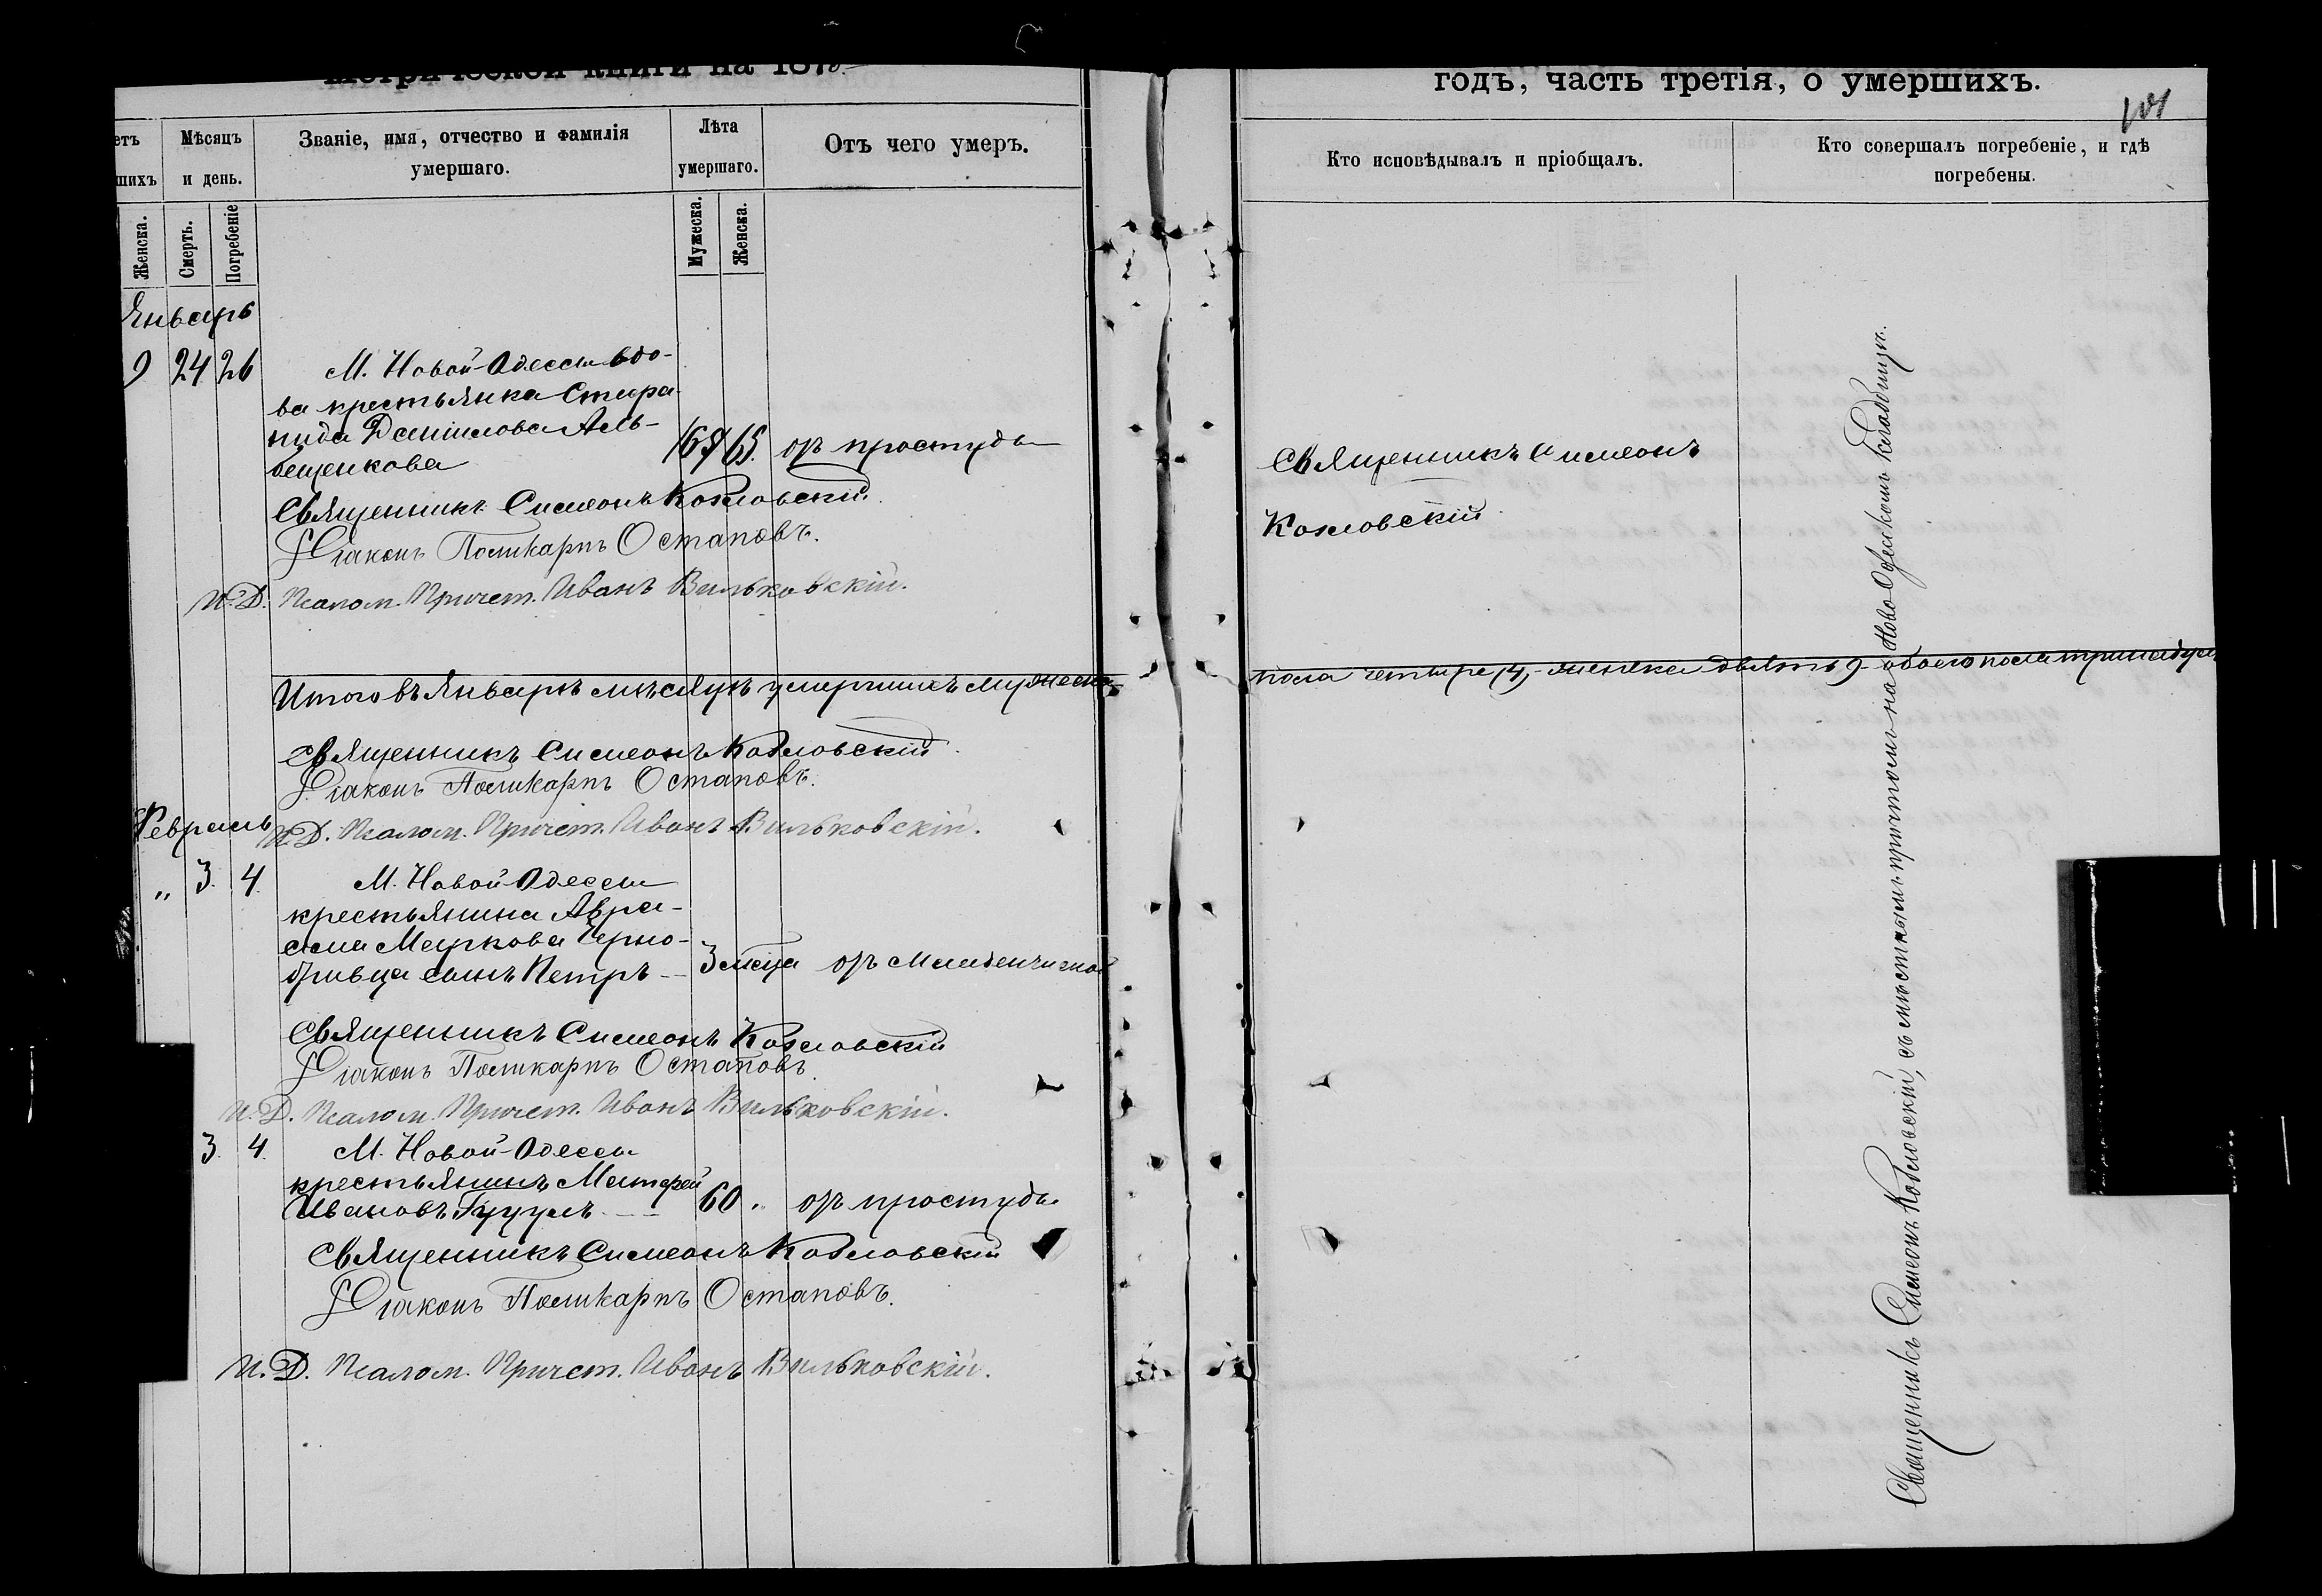 Метрической книги на 187
етъ
шихъ
Мѣсяцъ
и день.
Званіе, имя, отчество и фамилія
умершаго.
Лѣта
умершаго.
Отъ чего умеръ.
Женска.
Смерть.
Погребеніе
Мужеска.
Женска.
Январь
9 24 26
М. Новой-Одессы вдо-
ва крестьянка Стира-
нида Даніилова
бещенкова
65. отъ простуды
Священникъ Симеонъ Козловскій
Діаконъ Поликарпъ Остаповъ.
И. Д. Псалом. Причет. Иванъ Вильковскій.
Итого въ Январѣ мѣсяцѣ умершихъ мужеска
Священникъ Симеонъ Козловскій
Діаконъ Поликарпъ Остаповъ.
Февраль
И. Д. Псалом. Причет. Иванъ Вильковскій.
„ 3. 4.
М. Новой-Одессы
крестьянина Авра-
ама Маркова Черно-
бривца сынъ Петръ
3 отъ
Священникъ Симеонъ Козловскій
Діаконъ Поликарпъ Остаповъ.
И. Д. Псалом. Причет. Иванъ Вильковскій.
3. 4.
М. Новой-Одессы
крестьянинъ Матфей
Ивановъ
60 отъ простуды
Священникъ Симеонъ Козловскій
Діаконъ Поликарпъ Остаповъ.
И. Д. Псалом. Причет. Иванъ Вильковскій.
годъ, часть третія, о умершихъ.
101
Кто исповѣдывалъ и пріобщалъ.
Кто совершалъ погребеніе, и гдѣ
погребены.
Священникъ Симеонъ
Козловскій
пола четыре (4, женска девять 9 обоего пола тринадцать
Священникъ Симеонъ Козловскій, съ мѣстнымъ причтомъ на Ново Одесскомъ кладбищѣ.